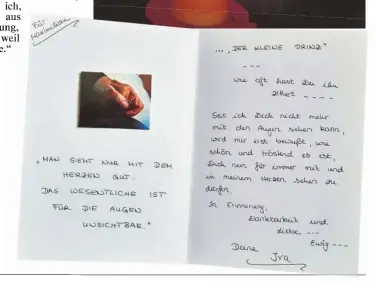 ich,
aus
ung,
weil
e.“
Für
„MAN SIEHT NUR MIT DEM
HERZEN GUT.
DAS WESENTLICHE IST
FÜR DIE AUGEN
UNSICHTBAR.“
... „DER KLEINE PRINZ“
---
wie oft hast Du ihn
zitiert ----
Seit ich Dich nicht mehr
mit den Augen sehen kann,
wird mir erst bewußt, wie
schön und tröstend es ist,
Dich nun für immer mit und
in meinem Herzen sehen zu
dürfen.
In Erinnerung,
Dankbarkeit und
Liebe ---
Ewig ---
Deine
Iva